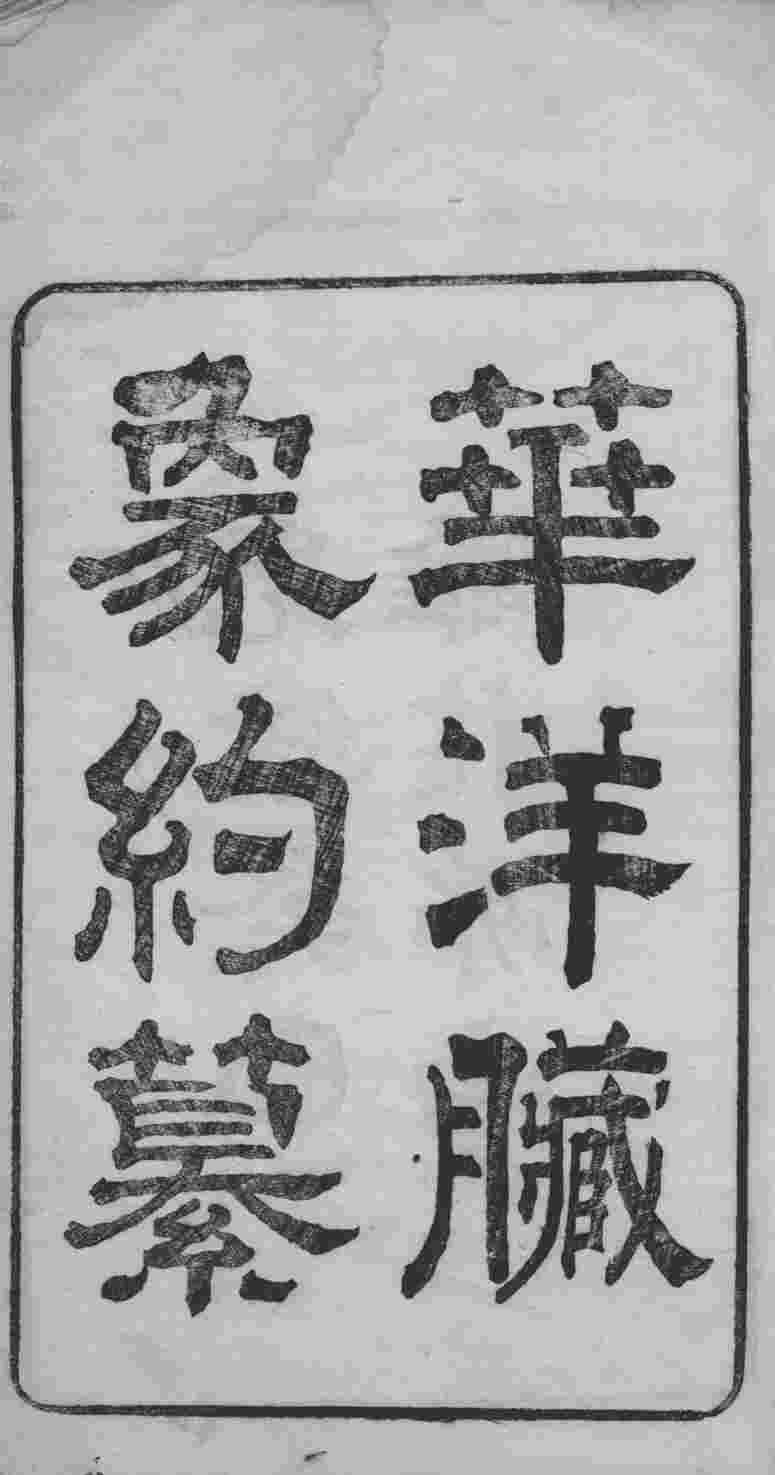 華洋臟
象約纂